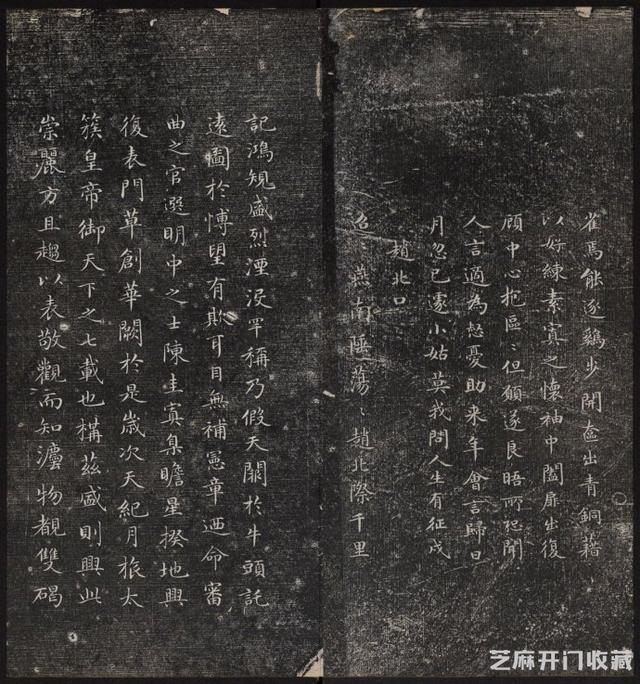 雀焉能逐鷄步開奩出青銅藉
以好練素寘之懷袖中闔扉出復
顧中心抱區〻但願遂良晤所恐聞
人言適為愁憂助来年會言歸日
月忽已遽小姑莫我問人生有征戍
趙北口
迢〻燕南陲蕩〻趙北際千里
記鴻規盛烈湮没罕稱乃假天闕於牛頭託
遠圖於博望有欺耳目無補憲章迺命審
曲之官選明中之士陳圭寘臬瞻星揆地興
復表門草創華闕於是歲次天紀月旅太
簇皇帝御天下之七載也構茲盛則興此
崇麗方且趨以表敬觀而知灋物覩雙碣
芝麻开门收藏